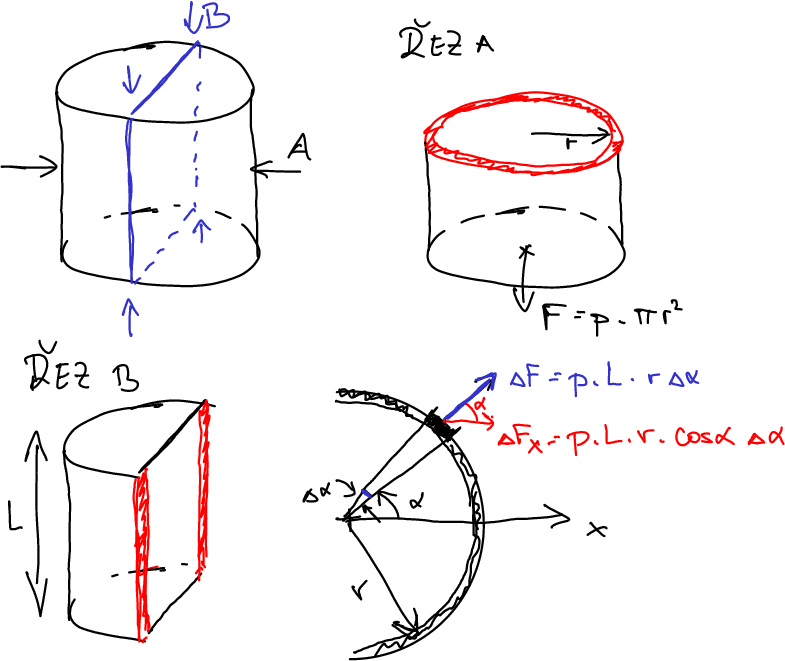 B
A
ŘEZ A
r
F = p . πr²
ŘEZ B
L
ΔF = p. L. r Δα
α
ΔFx = p. L. r. cosα Δα
Δα
α
x
r